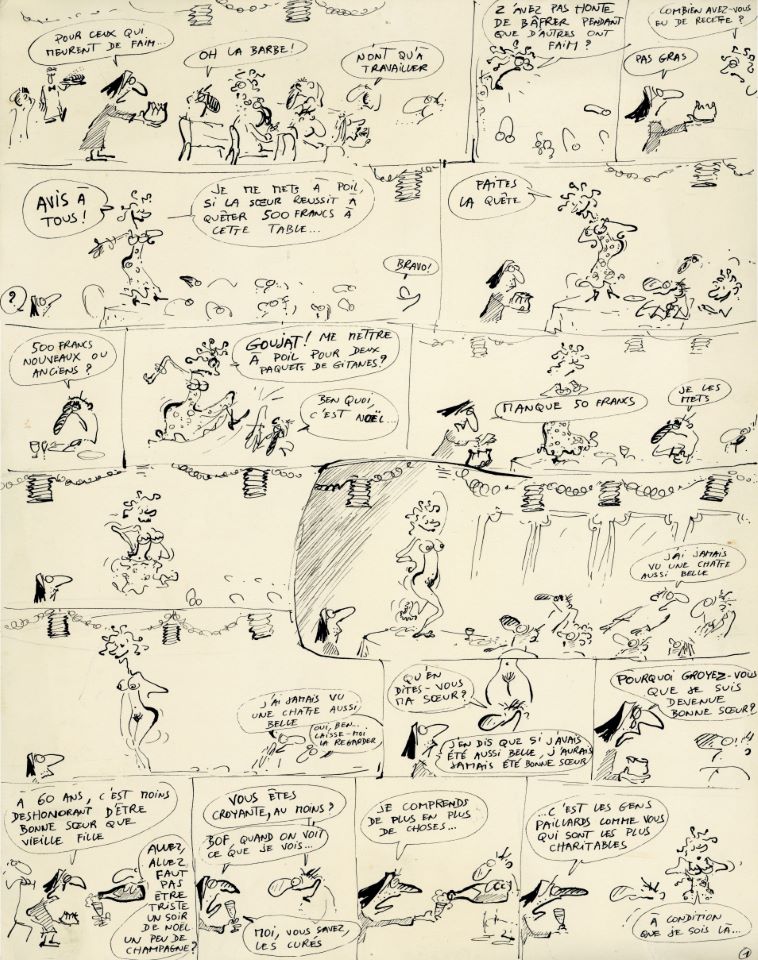 POUR CEUX QUI
MEURENT DE FAIM...
OH LA BARBE!
N'ONT QU'A
TRAVAILLER
Z'AVEZ PAS HONTE
DE BÂFRER PENDANT
QUE D'AUTRES ONT
FAIM?
COMBIEN AVEZ-VOUS
EU DE RECETTE?
PAS GRAS
AVIS À
TOUS!
JE ME METS À POIL,
SI LA SŒUR REUSSIT À
QUÊTER 500 FRANCS À
CETTE TABLE...
?
BRAVO!
FAITES
LA QUÊTE
500 FRANCS
NOUVEAUX OU
ANCIENS?
GOUJAT! ME METTRE
A POIL POUR DEUX
PAQUETS DE GITANES?
BEN QUOI
C'EST NOËL...
MANQUE 50 FRANCS
JE LES
METS
J'AI JAMAIS
VU UNE CHATTE
AUSSI BELLE
J'AI JAMAIS VU
UNE CHATTE AUSSI
BELLE
OUI, BEN...
LAISSE-MOI
LA REGARDER
QU'EN
DITES-VOUS
MA SŒUR?
J'EN DIS QUE SI J'AVAIS
ÉTÉ AUSSI BELLE, J'AURAIS
JAMAIS ÉTÉ BONNE SŒUR
POURQUOI CROYEZ-VOUS
QUE JE SUIS
DEVENUE
BONNE SŒUR?
A 60 ANS, C'EST MOINS
DESHONORANT D'ÊTRE
BONNE SŒUR QUE
VIEILLE FILLE
ALLEZ,
ALLEZ
FAUT
PAS
ÊTRE
TRISTE
UN SOIR
DE NOËL
UN PEU DE
CHAMPAGNE?
VOUS ÊTES
CROYANTE, AU MOINS?
BOF, QUAND ON VOIT
CE QUE JE VOIS...
MOI, VOUS SAVEZ,
LES CURÉS
JE COMPRENDS
DE PLUS EN PLUS
DE CHOSES...
...C'EST LES GENS
PAILLARDS COMME VOUS
QUI SONT LES PLUS
CHARITABLES
A CONDITION
QUE JE SOIS LÀ...
1